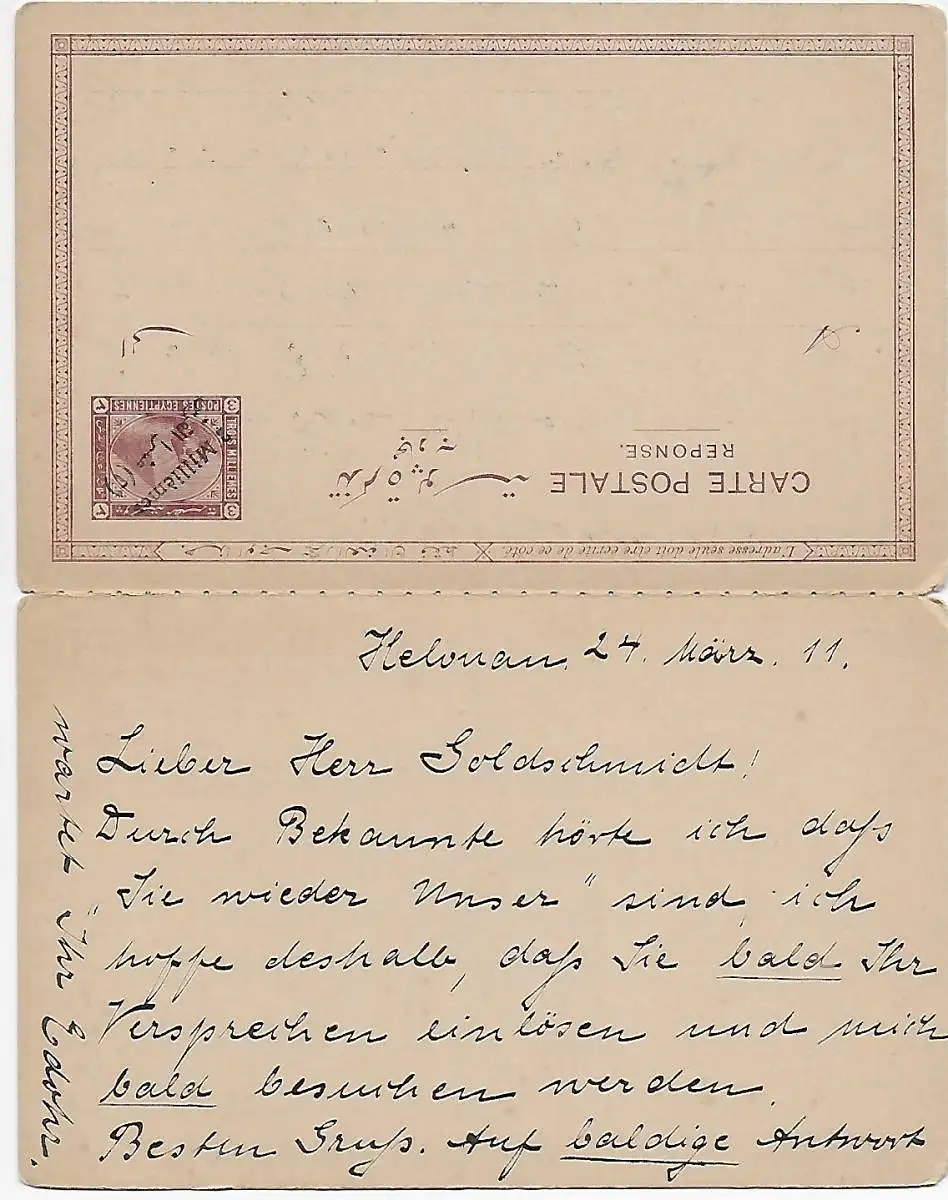 L'adresse seule doit être écrite de ce côté.
CARTE POSTALE
REPONSE.
POSTES EGYPTIENNES
TROIS MILLIEMES
3
3
Millièmes
Helouan, 24. März. 11.
Lieber Herr Goldschmidt!
Durch Bekannte hörte ich daß
„Sie wieder Unser“ sind, ich
hoffe deshalb, daß Sie bald Ihr
Versprechen einlösen und mich
bald besuchen werden.
Besten Gruß. Auf baldige Antwort
wartet Ihr